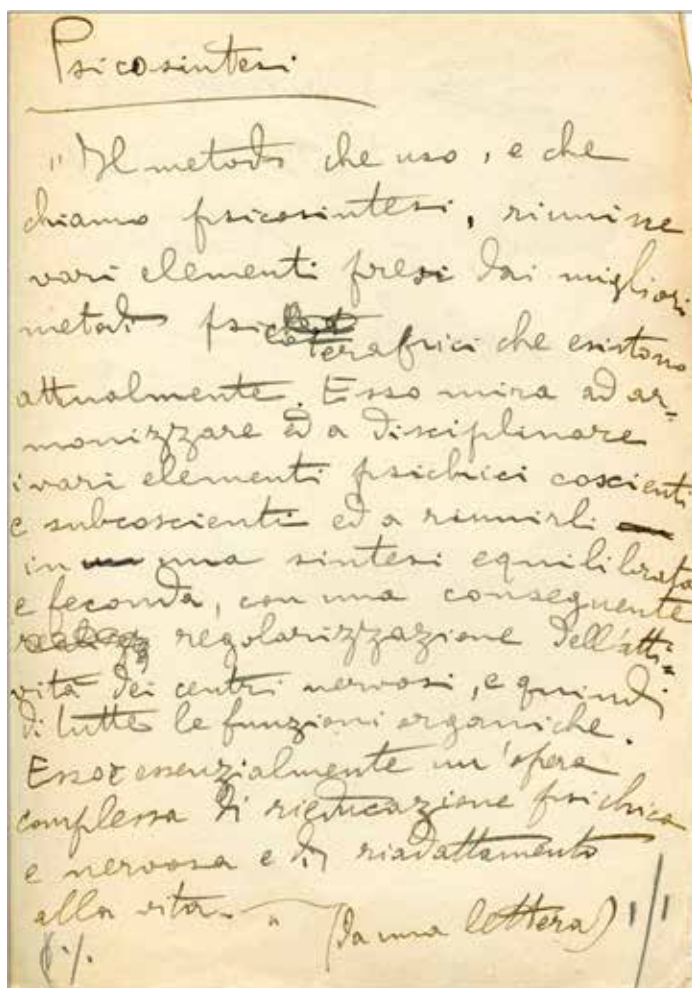 Psicosintesi
"Il metodo che uso, e che
chiamo psicosintesi, riunisce
vari elementi presi dai migliori
metodi psicoterapici che esistono
attualmente. Esso mira ad ar-
monizzare ed a disciplinare
i vari elementi psichici coscienti
e subcoscienti ed a riunirli
in una sintesi equilibrata
e feconda, con una conseguente
regolarizzazione dell'atti-
vità dei centri nervosi, e quindi
di tutte le funzioni organiche.
Esso è essenzialmente un'opera
complessa di rieducazione psichica
e nervosa e di riadattamento
alla vita. "
(da una lettera) 1/1